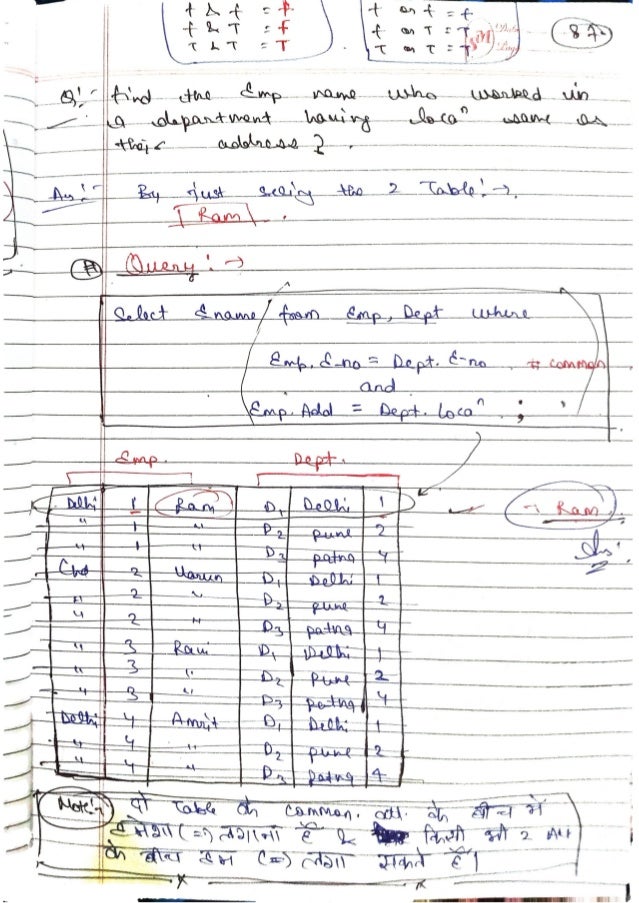 f & f = f
f & T = f
T & T = T
f or f = f
f or T = T
T or T = T
87
Q:- find the Emp name who worked in
a department having locaⁿ same as
their address ?.
Ans:- By just seeing the 2 Table:→.
Ram.
Query:→
Select Ename from Emp, Dept where
Emp. E-no = Dept. E-no # common
and
Emp. Add = Dept. locaⁿ ;
Emp. Dept.
Delhi 1 Ram D₁ Delhi 1 → Ram.
" 1 " D₂ pune 2 Ans:
" 1 " D₃ patna 4
Chd 2 Varun D₁ Delhi 1
" 2 " D₂ pune 2
" 2 " D₃ patna 4
" 3 Ravi D₁ Delhi 1
" 3 " D₂ pune 2
" 3 " D₃ patna 4
Delhi 4 Amrit D₁ Delhi 1
" 4 " D₂ pune 2
" 4 " D₃ patna 4
Note:- दो Table के common. att. के बीच में
हमेशा (=) लगाना है & किसी भी 2 Att
के बीच हम (=) लगा सकते हैं।